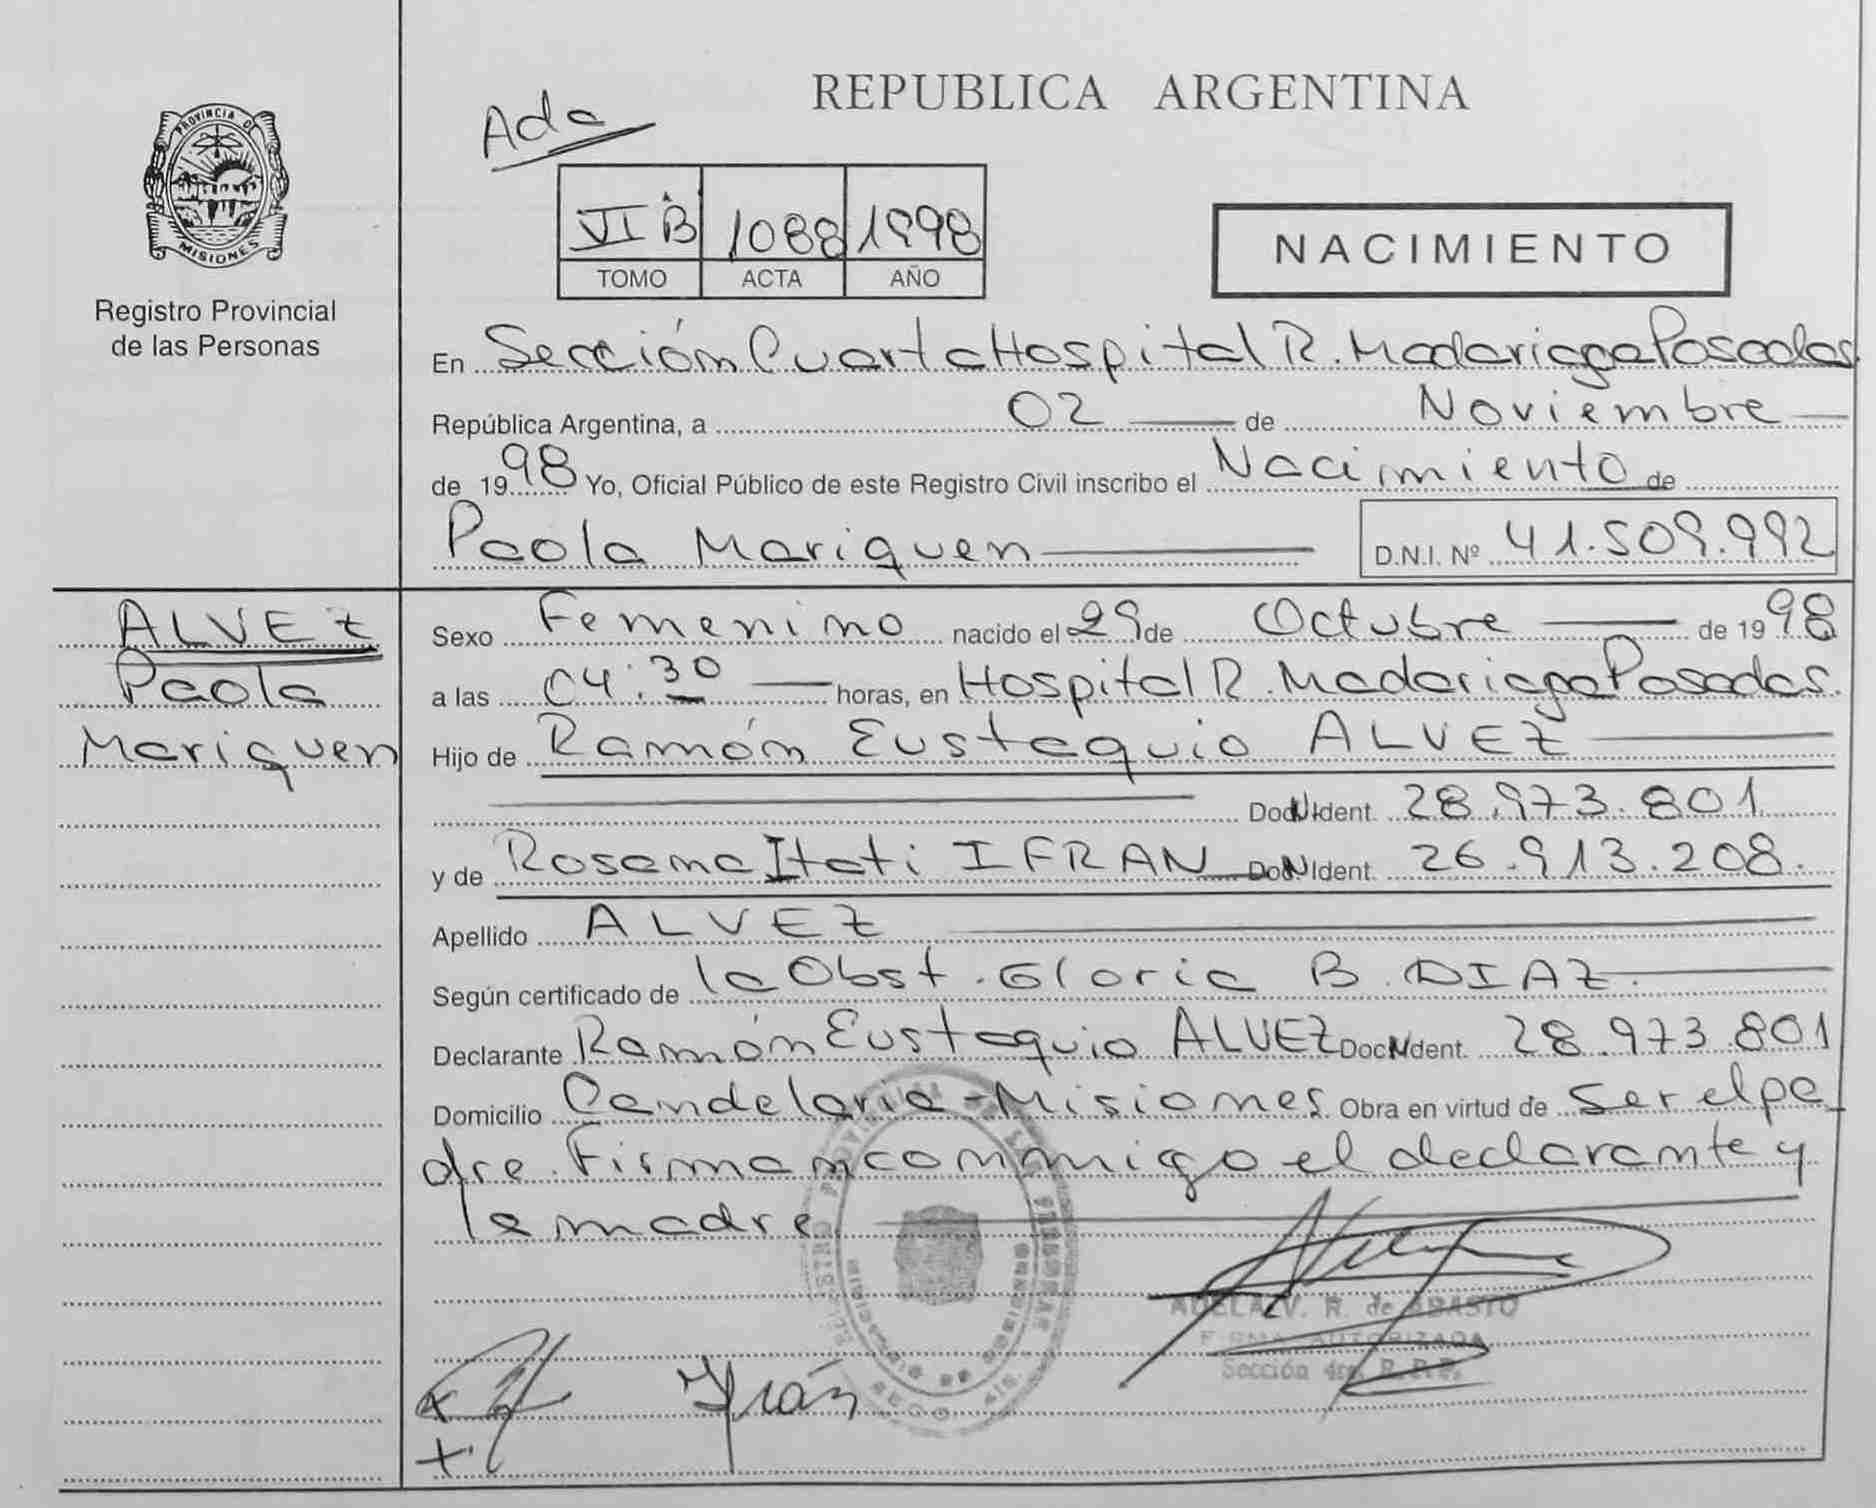 REPUBLICA ARGENTINA
Ada
PROVINCIA D
MISIONES
VI B 1088 1998
TOMO ACTA AÑO
NACIMIENTO
Registro Provincial
de las Personas
En Sección Cuarta Hospital R. Madariaga Posadas
República Argentina, a 02 de Noviembre
de 1998 Yo, Oficial Público de este Registro Civil inscribo el Nacimiento de
Paola Mariquen D.N.I. Nº 41.509.992
ALVEZ
Paola
Mariquen
Sexo Femenino nacido el 29 de Octubre de 1998
a las 04:30 horas, en Hospital R. Madariaga Posadas.
Hijo de Ramón Eustaquio ALVEZ
Doc. Ident. 28.973.801
y de Rosana Itati IFRAN Doc. Ident. 26.913.208.
Apellido ALVEZ
Según certificado de la Obst. Gloria B. DIAZ.
Declarante Ramón Eustaquio ALVEZ Doc. Ident. 28.973.801
Domicilio Candelaria - Misiones Obra en virtud de ser el pa
dre. Firman conmigo el declarante y
la madre.
ADELA V. R. de ABASTO
FIRMA AUTORIZADA
Sección 4ta. R.P.P.
Ifrán